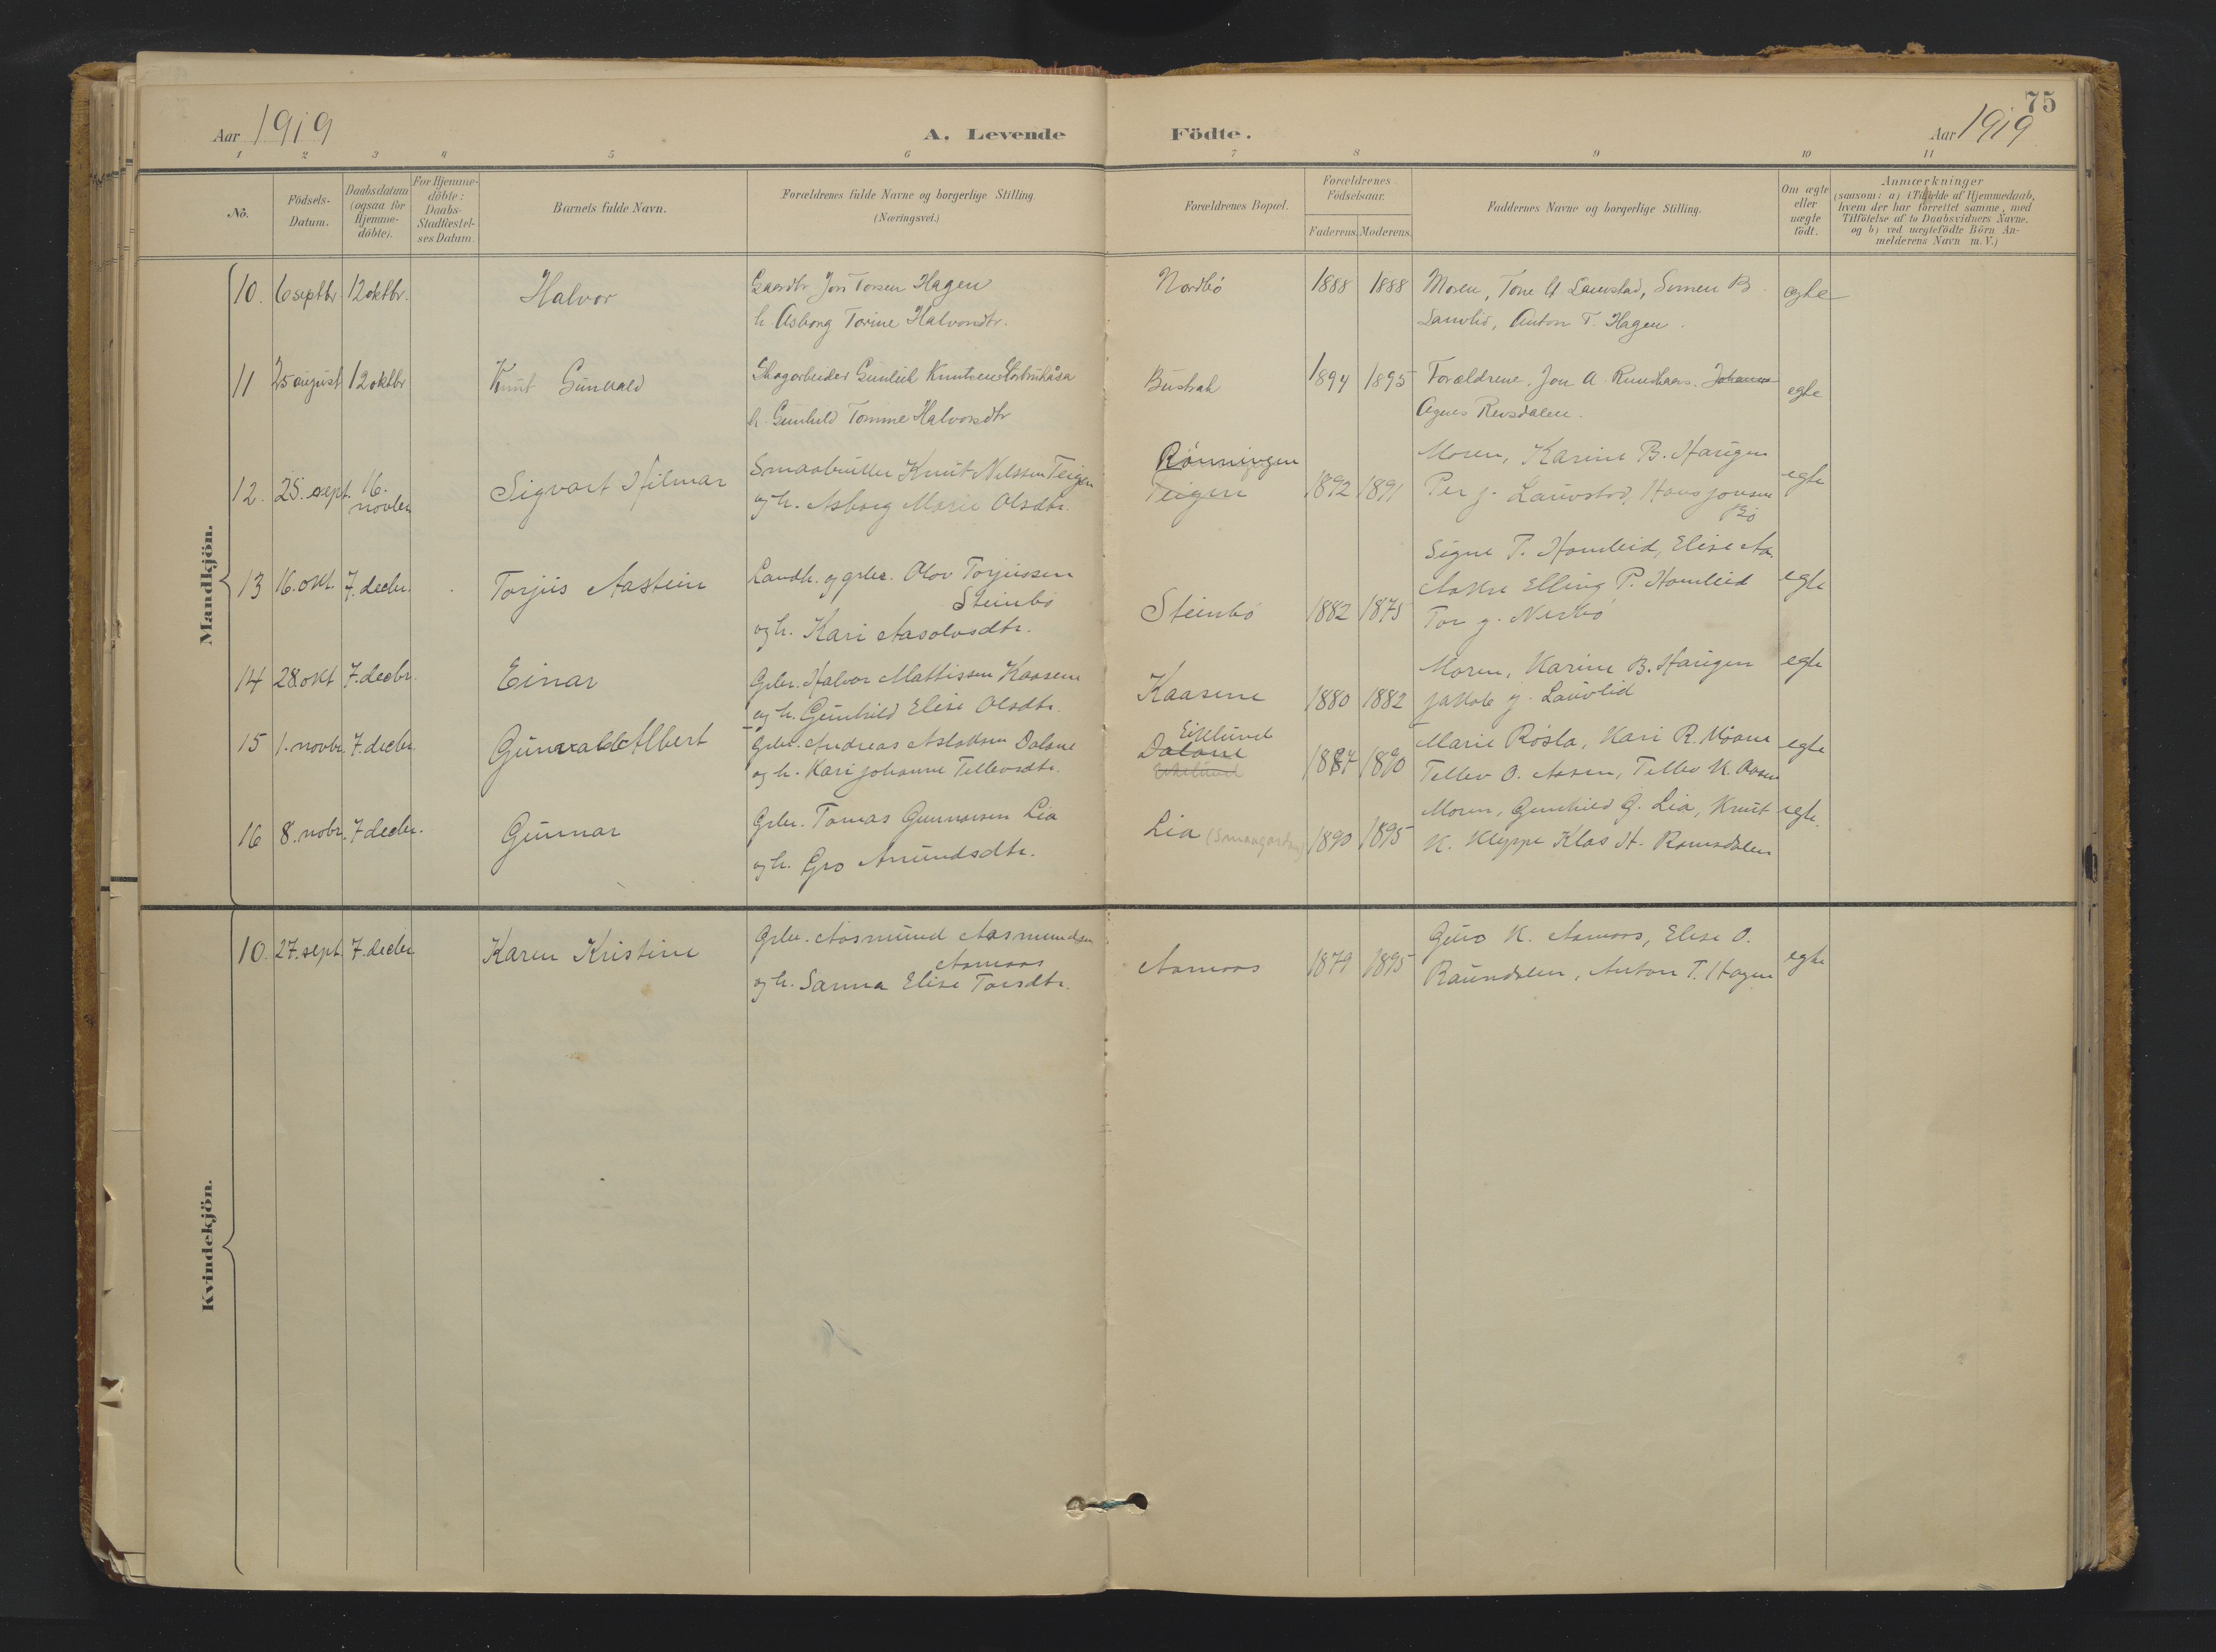 75
Aar 1919
A. Levende Födte.
Aar 1919
1 2 3 4 5 6 7 8 9 10 11
No.
Födsels-
Datum.
Daabsdatum
(ogsaa for
Hjemme-
döbte).
For Hjemme-
döbte:
Daabs-
Stadfæstel-
ses Datum.
Barnets fulde Navn.
Forældrenes fulde Navne og borgerlige Stilling.
(Næringsvei.)
Forældrenes Bopæl.
Forældrenes
Födselsaar.
Faderens. Moderens.
Faddernes Navne og borgerlige Stilling.
Om ægte
eller
uægte
födt.
Anmærkninger
(saasom: a) i Tilfælde af Hjemmedaab,
hvem der har forrettet samme, med
Tilföielse af to Daabsvidners Navne.
og b) ved uægtefödte Börn An-
melderens Navn m. V.)
Mandkjön.
10. 6 septbr. 12 oktbr. Halvor Gaardbr. Jon Torsen Hagen Nordbö 1888 1888 Moren, Tone A Lauvstad, B. egte
h. Asborg Torine Halvorsdtr. Lauvlid, Anton T. Hagen.
11 25 august 12 oktbr Knut Gunvald Skogarbeider Gunleik Knutsen Bustrak 1894 1895 Forældrene, Jon A. Johanne egte
h. Gunhild Tomine Halvorsdtr Agnes
12. 25. sept. 16. novbr Sigvart Hilmar Smaabruker Knut Nilssen Teigen Rönningen 1892 1891 Moren, Karine B. Haugen egte
og h. Asborg Marie Olsdtr. Teigen Per J. Lauvstad, Hans Jonsen
Bö
13 16. okt. 7. decbr. Torjus Aastein Landh. og grbr. Olov Torjussen Signe T. Homleid, Elise Aa.
Steinbö Steinbö 1882 1875 Elling P. Homleid egte
og h. Kari Aasolvsdtr. Tor J. Nesbö
14 28 okt 7. decbr. Einar Grbr. Halvor Mattissen Kaasene Kaasene 1880 1882 Moren, Karine B. Haugen egte
og h. Gunhild Elise Olsdtr. Jakob J. Lauvlid
15 1. novbr. 7. decbr. Gunvald Albert Grbr. Andreas Aslaksen Dalane Eiklund 1887 1890 Marie Rösla, Kari R. Moane egte
og h. Kari Johanne Tellevsdtr. Dalane Tellev O. Aasen, Tellev K. Aasen
16 8. nobr. 7 decbr. Gunnar Grbr. Tomas Gunnarsen Lia Lia (Smaagarden) 1890 1895 Moren, Gunhild G. Lia, Knut egte.
og h. Gro Amundsdtr. K. Kleppe Klas H. Ramsdalen
Kvindekjön.
10. 27. sept. 7. decbr Karen Kristine Grbr. Aasmund Aasmundsen Aamaas 1879 1895 Guro K. Aamaas, Elise O. egte
Aamaas
og h. Sanna Elise Torsdtr. Raundalen, Anton T. Hagen